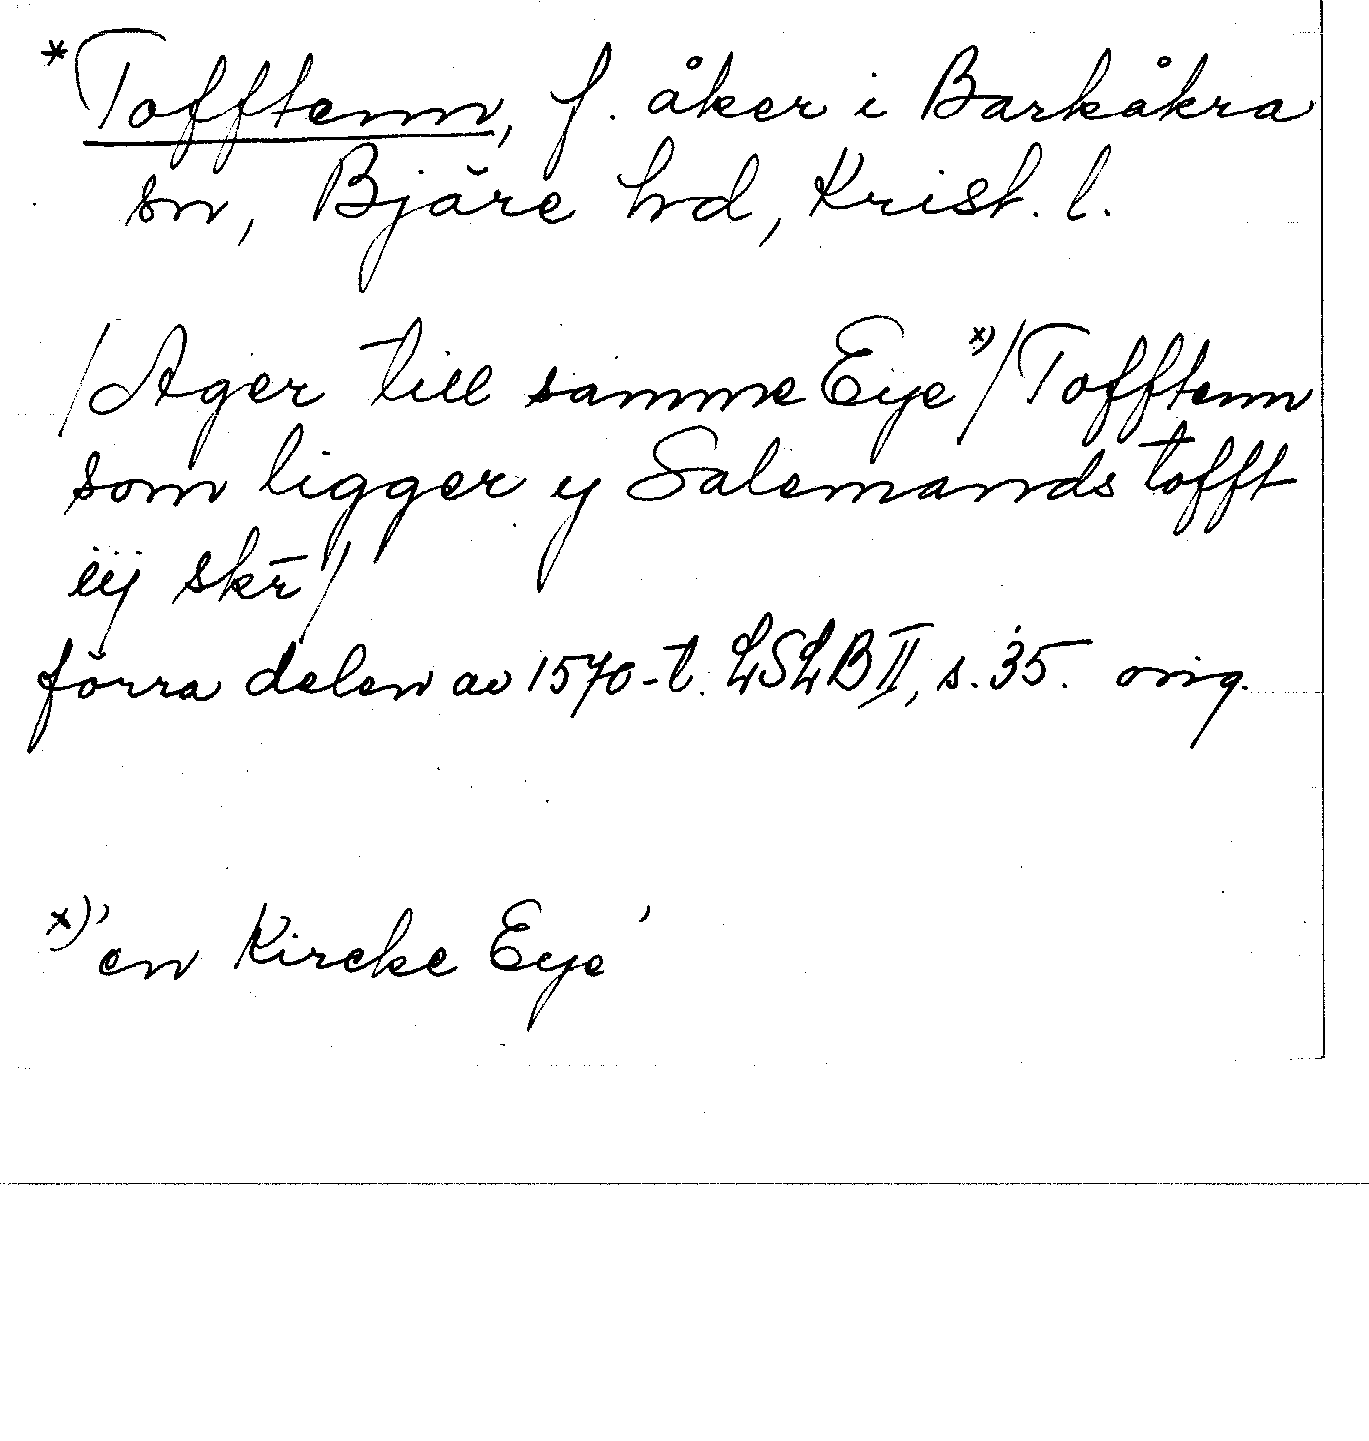 *Tofftenn, f. åker i Barkåkra
sn, Bjäre hd, Krist. l.
/Ager till samme Eye x)/ Tofftenn
som ligger y Salemands tofft
iij skr̄/
förra delen av 1570-t. LSLB II, s. 35. orig.
x) 'en Kircke Eye'